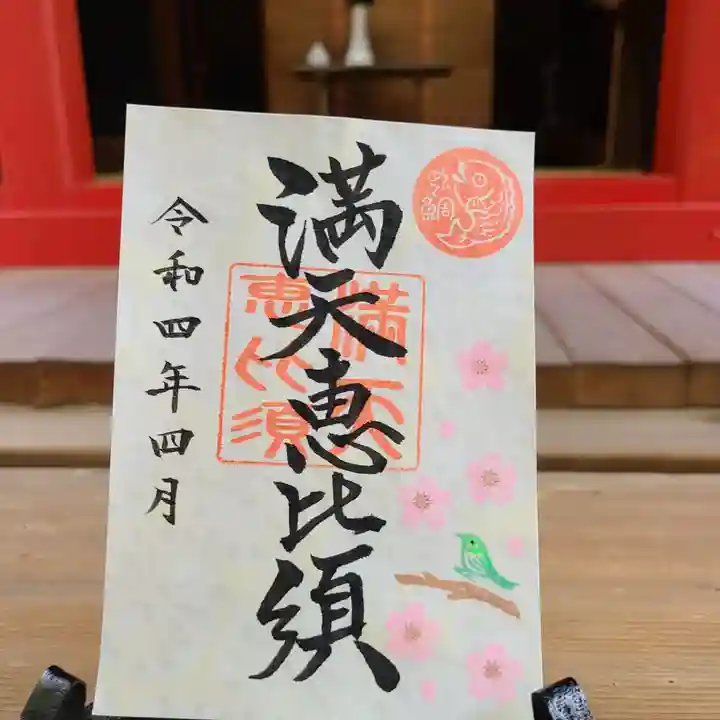 満天恵比須
満天
恵比須
令和四年四月